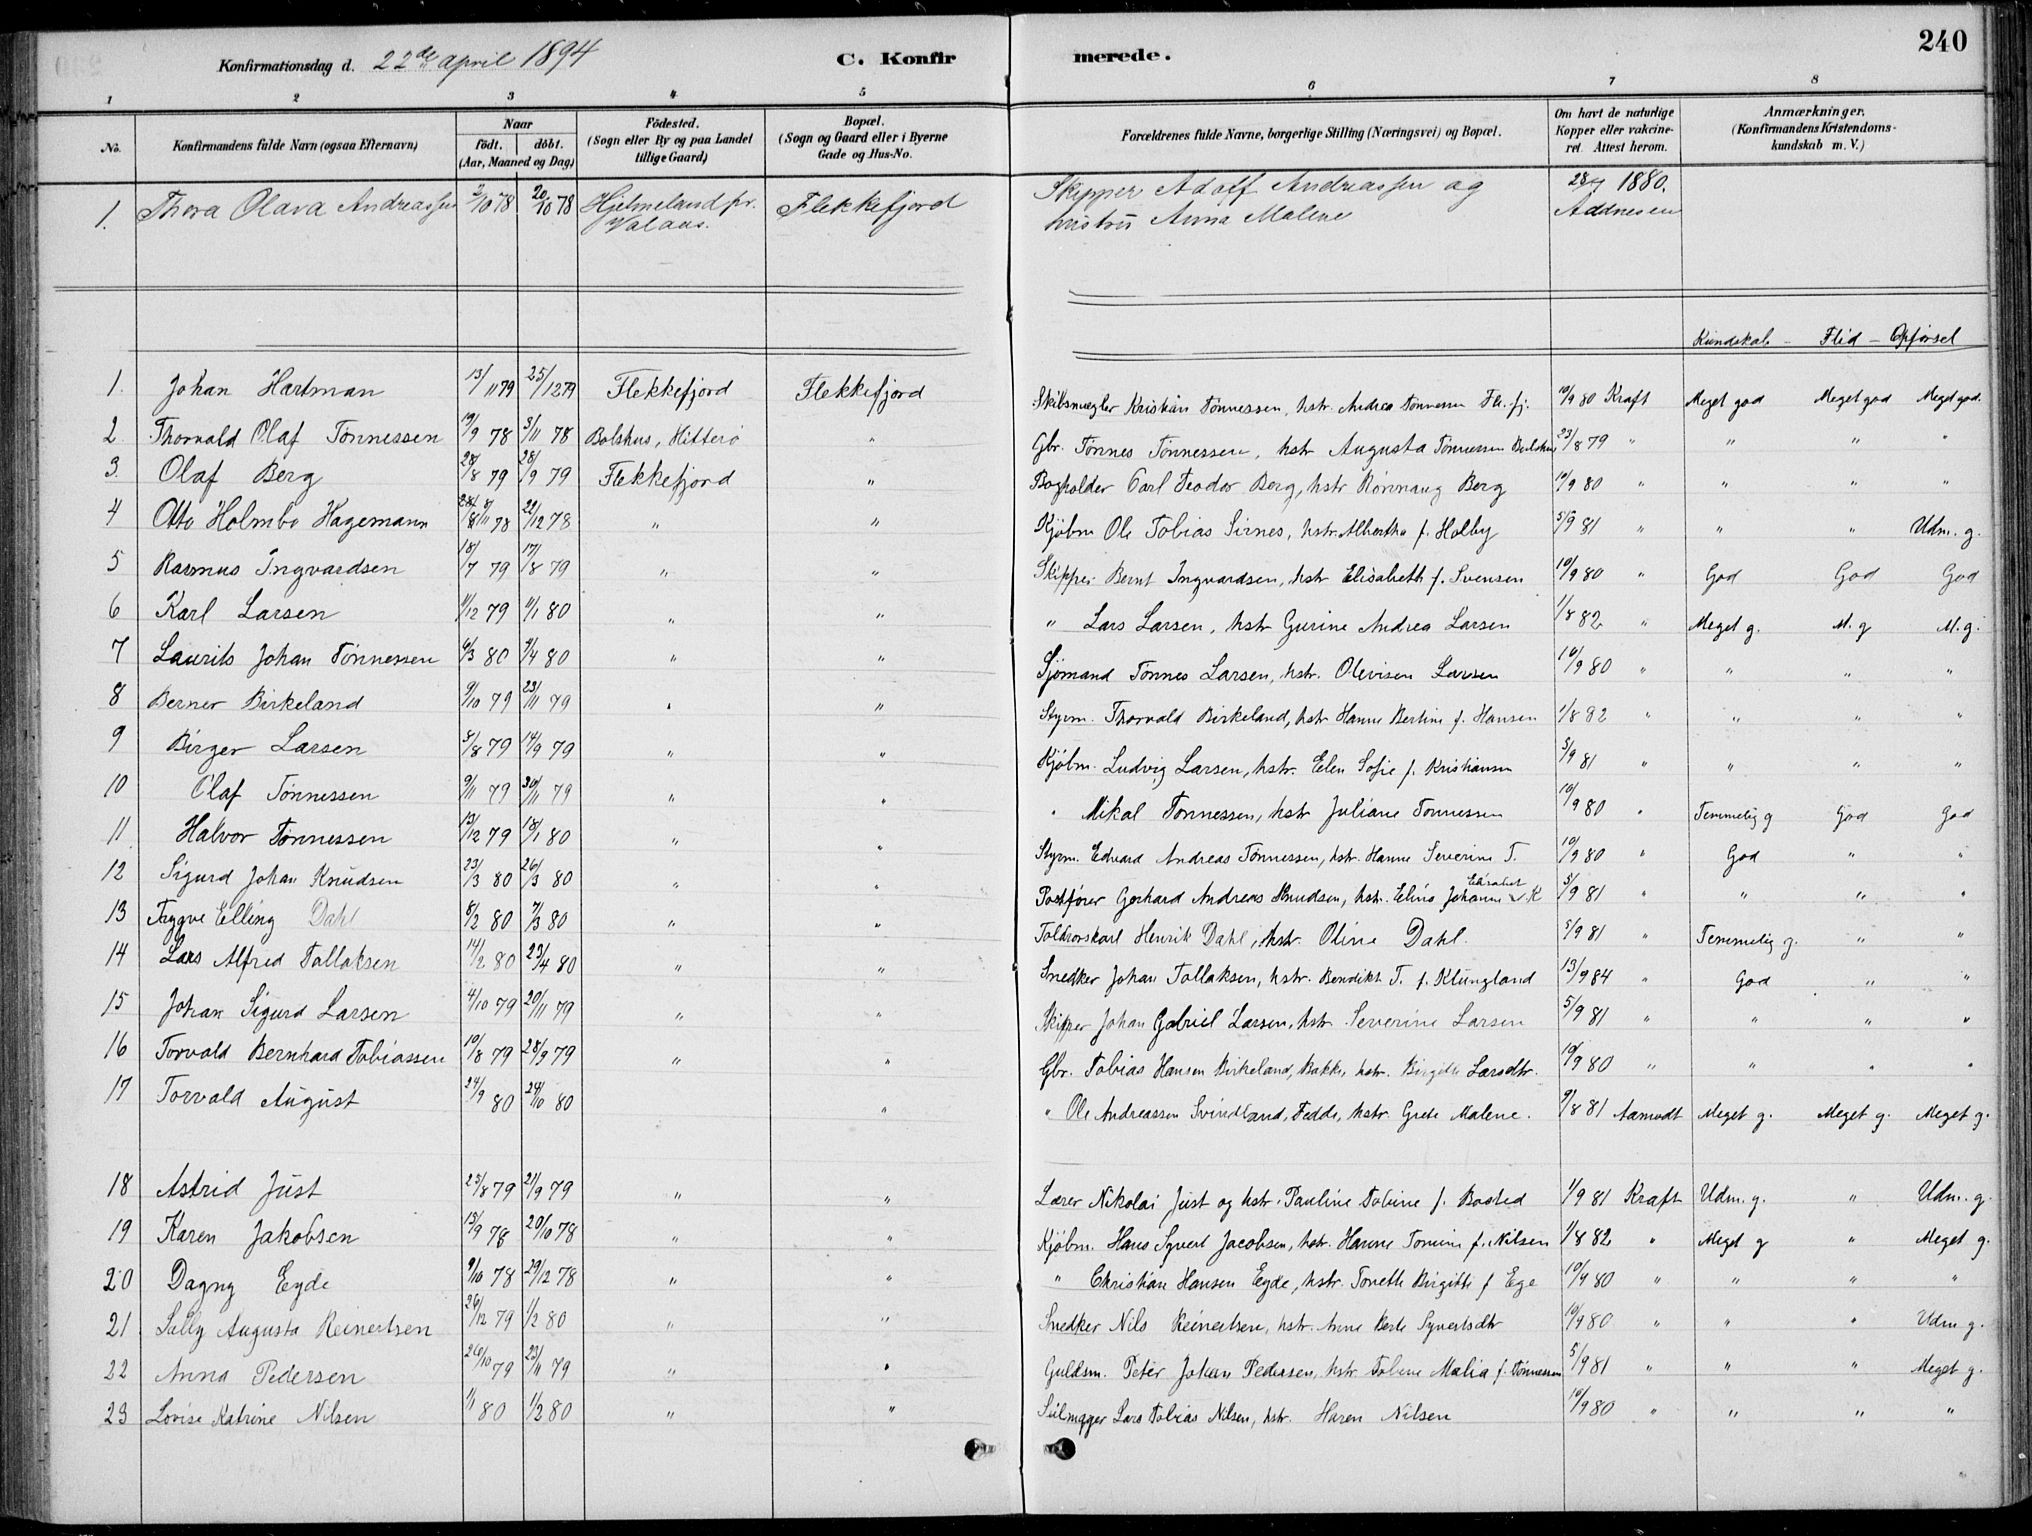 240
Konfirmationsdag d. 22de april 1894
C. Konfir merede.
1 2 3 4 5 6 7 8
No. Konfirmandens fulde Navn (ogsaa Efternavn) Naar født. døbt. (Aar, Maaned og Dag) Födested. (Sogn eller By og paa Landet tillige Gaard) Bopæl. (Sogn og Gaard eller i Byerne Gade og Hus-No. Forældrenes fulde Navne, borgerlige Stilling (Næringsvei) og Bopæl. Om havt de naturlige Kopper eller vakcineret. Attest herom. Anmærkninger. (Konfirmandens Kristendomskundskab m. V.)
1. Thora Olava Andreassen 2/10 78 20/10 78 Hjelmeland pr. Valaas. Flekkefjord Skipper Adolf Andreassen og hustru Anna Malene 1880. Addnesen
Kundskab - Flid - Opførsel
1. Johan Hartman 13/11 79 25/12 79 Flekkefjord Flekkefjord Skibsmægler Kristian Tønnessen, hstr. Andrea Tønnessen Fl. fj. 10/9 80 Kraft Meget god Meget god Meget god.
2 Thorvald Olaf Tønnessen 19/9 78 3/11 78 Bolshus, Hitterø " Gbr. Tønnes Tønnessen, hstr Augusta Tønnessen 23/8 79 " " " "
3. Olaf Berg 28/8 79 28/9 79 Flekkefjord " Bogholder Carl Teodor Berg, hstr Rønnaug Berg 10/9 80 " " " "
4 Otto Holmbo Hagemann 8/11 78 22/12 78 " " Kjøbm Ole Tobias Sirnes, hstr. Albertha f. Holby 5/9 81 " " " Udm. g.
5 Rasmus Ingvardsen 18/7 79 17/8 79 " " Skipper Bernt Ingvardsen, hstr Elisabeth f. Svensen 10/9 80 " God God God
6 Karl Larsen 11/12 79 11/1 80 " " " Lars Larsen, hstr Gurine Andrea Larsen 1/8 82 " Meget g. M. g M. g.
7 Laurits Johan Tønnessen 6/3 80 4/4 80 " " Sjømand Tønnes Larsen, hstr. Olevisen Larsen 10/9 80 " " " "
8 Berner Birkeland 9/10 79 23/11 79 " " Styrm. Thorvald Birkeland, hstr Hanne Bertine f. Hansen 1/8 82 " " " "
9 Birger Larsen 3/8 79 14/9 79 " " Kjøbm. Ludvig Larsen, hstr. Elen Sofie f. Kristiansen 5/9 81 " " " "
10 Olaf Tønnessen 9/11 79 30/11 79 " " " Mikal Tønnessen, hstr Juliane Tønnessen 10/9 80 " Temmelig g God God
11 Halvor Tønnessen 13/12 79 18/1 80 " " Styrm. Edvard Andreas Tønnessen, hstr. Hanne Severine T. 10/9 80 " God " "
12 Sigurd Johan Knudsen 23/3 80 26/3 80 " " Postfører Gerhard Andreas Knudsen, hstr. Elina Johanne Elisabet K 5/9 81 " " " "
13 Trygve Elling Dahl 8/2 80 7/3 80 " " Toldrorskarl Henrik Dahl, hstr. Oline Dahl. 5/9 81 " Temmelig g. " "
14 Lars Alfred Tollaksen 14/2 80 23/4 80 " " Snedker Johan Tollaksen, hstr. Bendikte T. f. Klungland 13/9 84 " God " "
15 Johan Sigurd Larsen 4/10 79 20/11 79 " " Skipper Johan Gabriel Larsen, hstr. Severine Larsen 5/9 81 " " " "
16 Torvald Bernhard Tobiassen 10/8 79 28/9 79 " " Gbr. Tobias Hansen Birkeland, Bakke, hstr. Birgitte Larsdtr. 10/9 80 " " " "
17 Torvald August 24/9 80 24/10 80 " " Ole Andreassen Svindland, Fedde, hstr. Grete Malene. 9/8 81 Aamodt Meget g. Meget g. Meget g.
18 Astrid Just 23/8 79 21/9 79 " " Lærer Nikolai Just og hstr. Pauline Tobine f. Bosted 1/9 81 Kraft Udm. g. " Udm. g.
19 Karen Jakobsen 15/9 78 20/10 78 " " Kjøbm. Hans Syvert Jacobsen, hstr. Hanne Tomine f. Nilsen 1/8 82 " Meget g " Meget g.
20 Dagny Eyde 9/10 78 29/12 78 " " " Christian Hansen Eyde, hstr. Tonette Birgitte f Ege 10/9 80 " " " "
21 Sally Augusta Reinertsen 26/12 79 1/2 80 " " Snedker Nils Reinertsen, hstr. Anne Berte Syvertsdtr 10/9 80 " " " Udm g.
22 Anna Pedersen 26/10 79 23/11 79 " " Guldsm. Peter Johan Pedersen, hstr Tobine Malia f. Tønnessen 5/9 81 " " " Meget g.
23 Lovise Katrine Nilsen 1/1 80 1/2 80 " " Seilmager Lars Tobias Nilsen, hstr. Karen Nilsen 10/9 80 " " " "